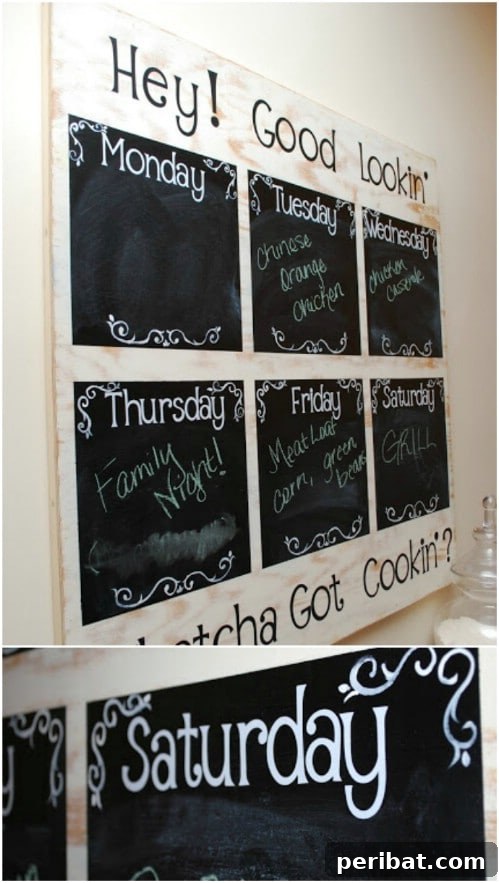 Hey! Good Lookin'
Monday
Tuesday
Chinese
Orange
Chicken
Wednesday
chicken
casserole
Thursday
Family
Night!
Friday
Meatloaf
corn, green
beans
Saturday
GRILL
Got Cookin'?
Saturday
peribat.com